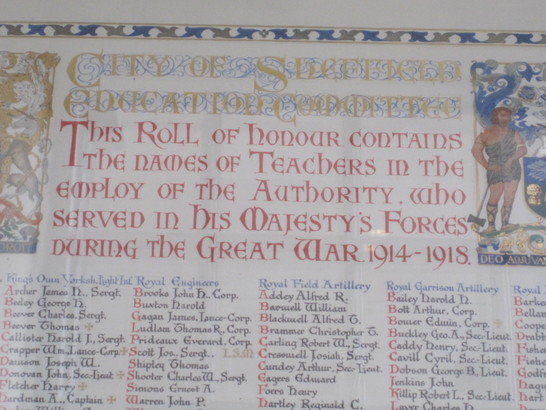 City of Sheffield
Education Committee
This Roll of Honour contains
the names of Teachers in the
employ of the Authority, who
served in His Majesty's Forces
during the Great War, 1914-1918.
DEO ADJUVANTE
King's Own Yorksh. Light Inf.
Archer James H., Sergt.
Bedoy George N.
Beever Charles, Sergt.
Beever Thomas ✠
Callister Harold J., Sergt.
Crapper Wm., Lance-Corp. ✠
Denison Joseph W.
Donovan John, Sec.-Lieut. ✠
Fletcher Harry ✠
Hardman A., Captain ✠
Royal Engineers
Brooks John H., Corp.
Buxton Harold
Gagan James, Lance-Corp.
Ludlam Thomas R., Corp.
Prideaux Everard, Corp.
Scott Jos., Sergt.
Shipley Thomas
Shooter Charles W., Sergt.
Simons Ernest A.
Warren John P.
Royal Field Artillery
Addey Alfred R.
Barwell William
Blackwell Alfred T.
Brammer Christopher T.
Carling Robert W., Sergt.
Cresswell Josiah, Sergt.
Cundey Arthur, Sec.-Lieut.
Eagers Edward
Foers Henry
Hartley Reginald C.
Royal Garrison Artillery
Bailey Harold N.
Bott Arthur, Corp.
Bower Edwin, Corp. ✠
Buckley Geo. A., Sec.-Lieut.
Caddy Henry, Sec.-Lieut.
Cavill Cyril, Sec.-Lieut.
Dobson George B., Lieut.
Jenkins John
Killip Robert L., Sec.-Lieut.
Laver Charles